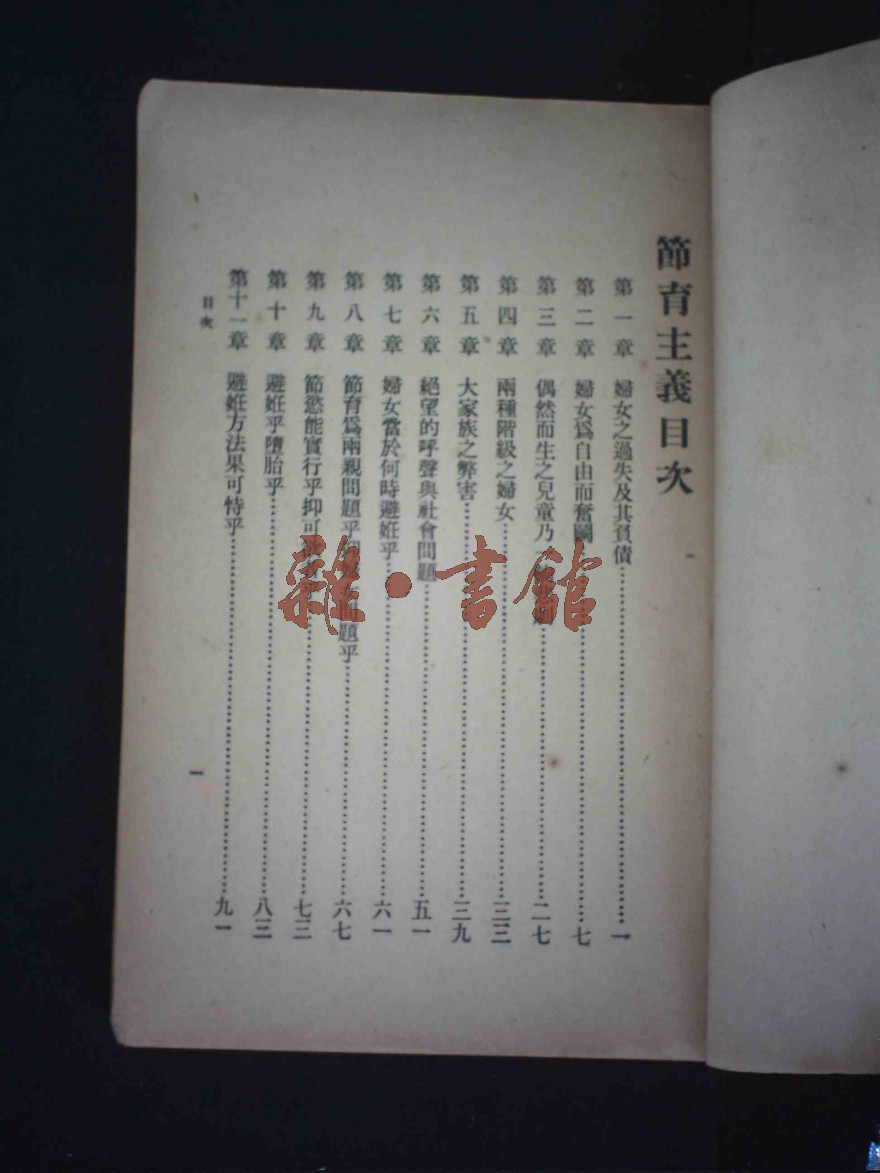 節育主義目次
第一章 婦女之過失及其負債……一
第二章 婦女爲自由而奮鬭……七
第三章 偶然而生之兒童乃……二七
第四章 兩種階級之婦女……三三
第五章 大家族之弊害……三九
第六章 絕望的呼聲與社會問題……五一
第七章 婦女當於何時避姙乎……六一
第八章 節育爲兩親問題乎抑婦女問題乎……六七
第九章 節慾能實行乎抑可……七三
第十章 避姙乎墮胎乎……八三
第十一章 避姙方法果可恃乎……九一
目次
一
雜·書館